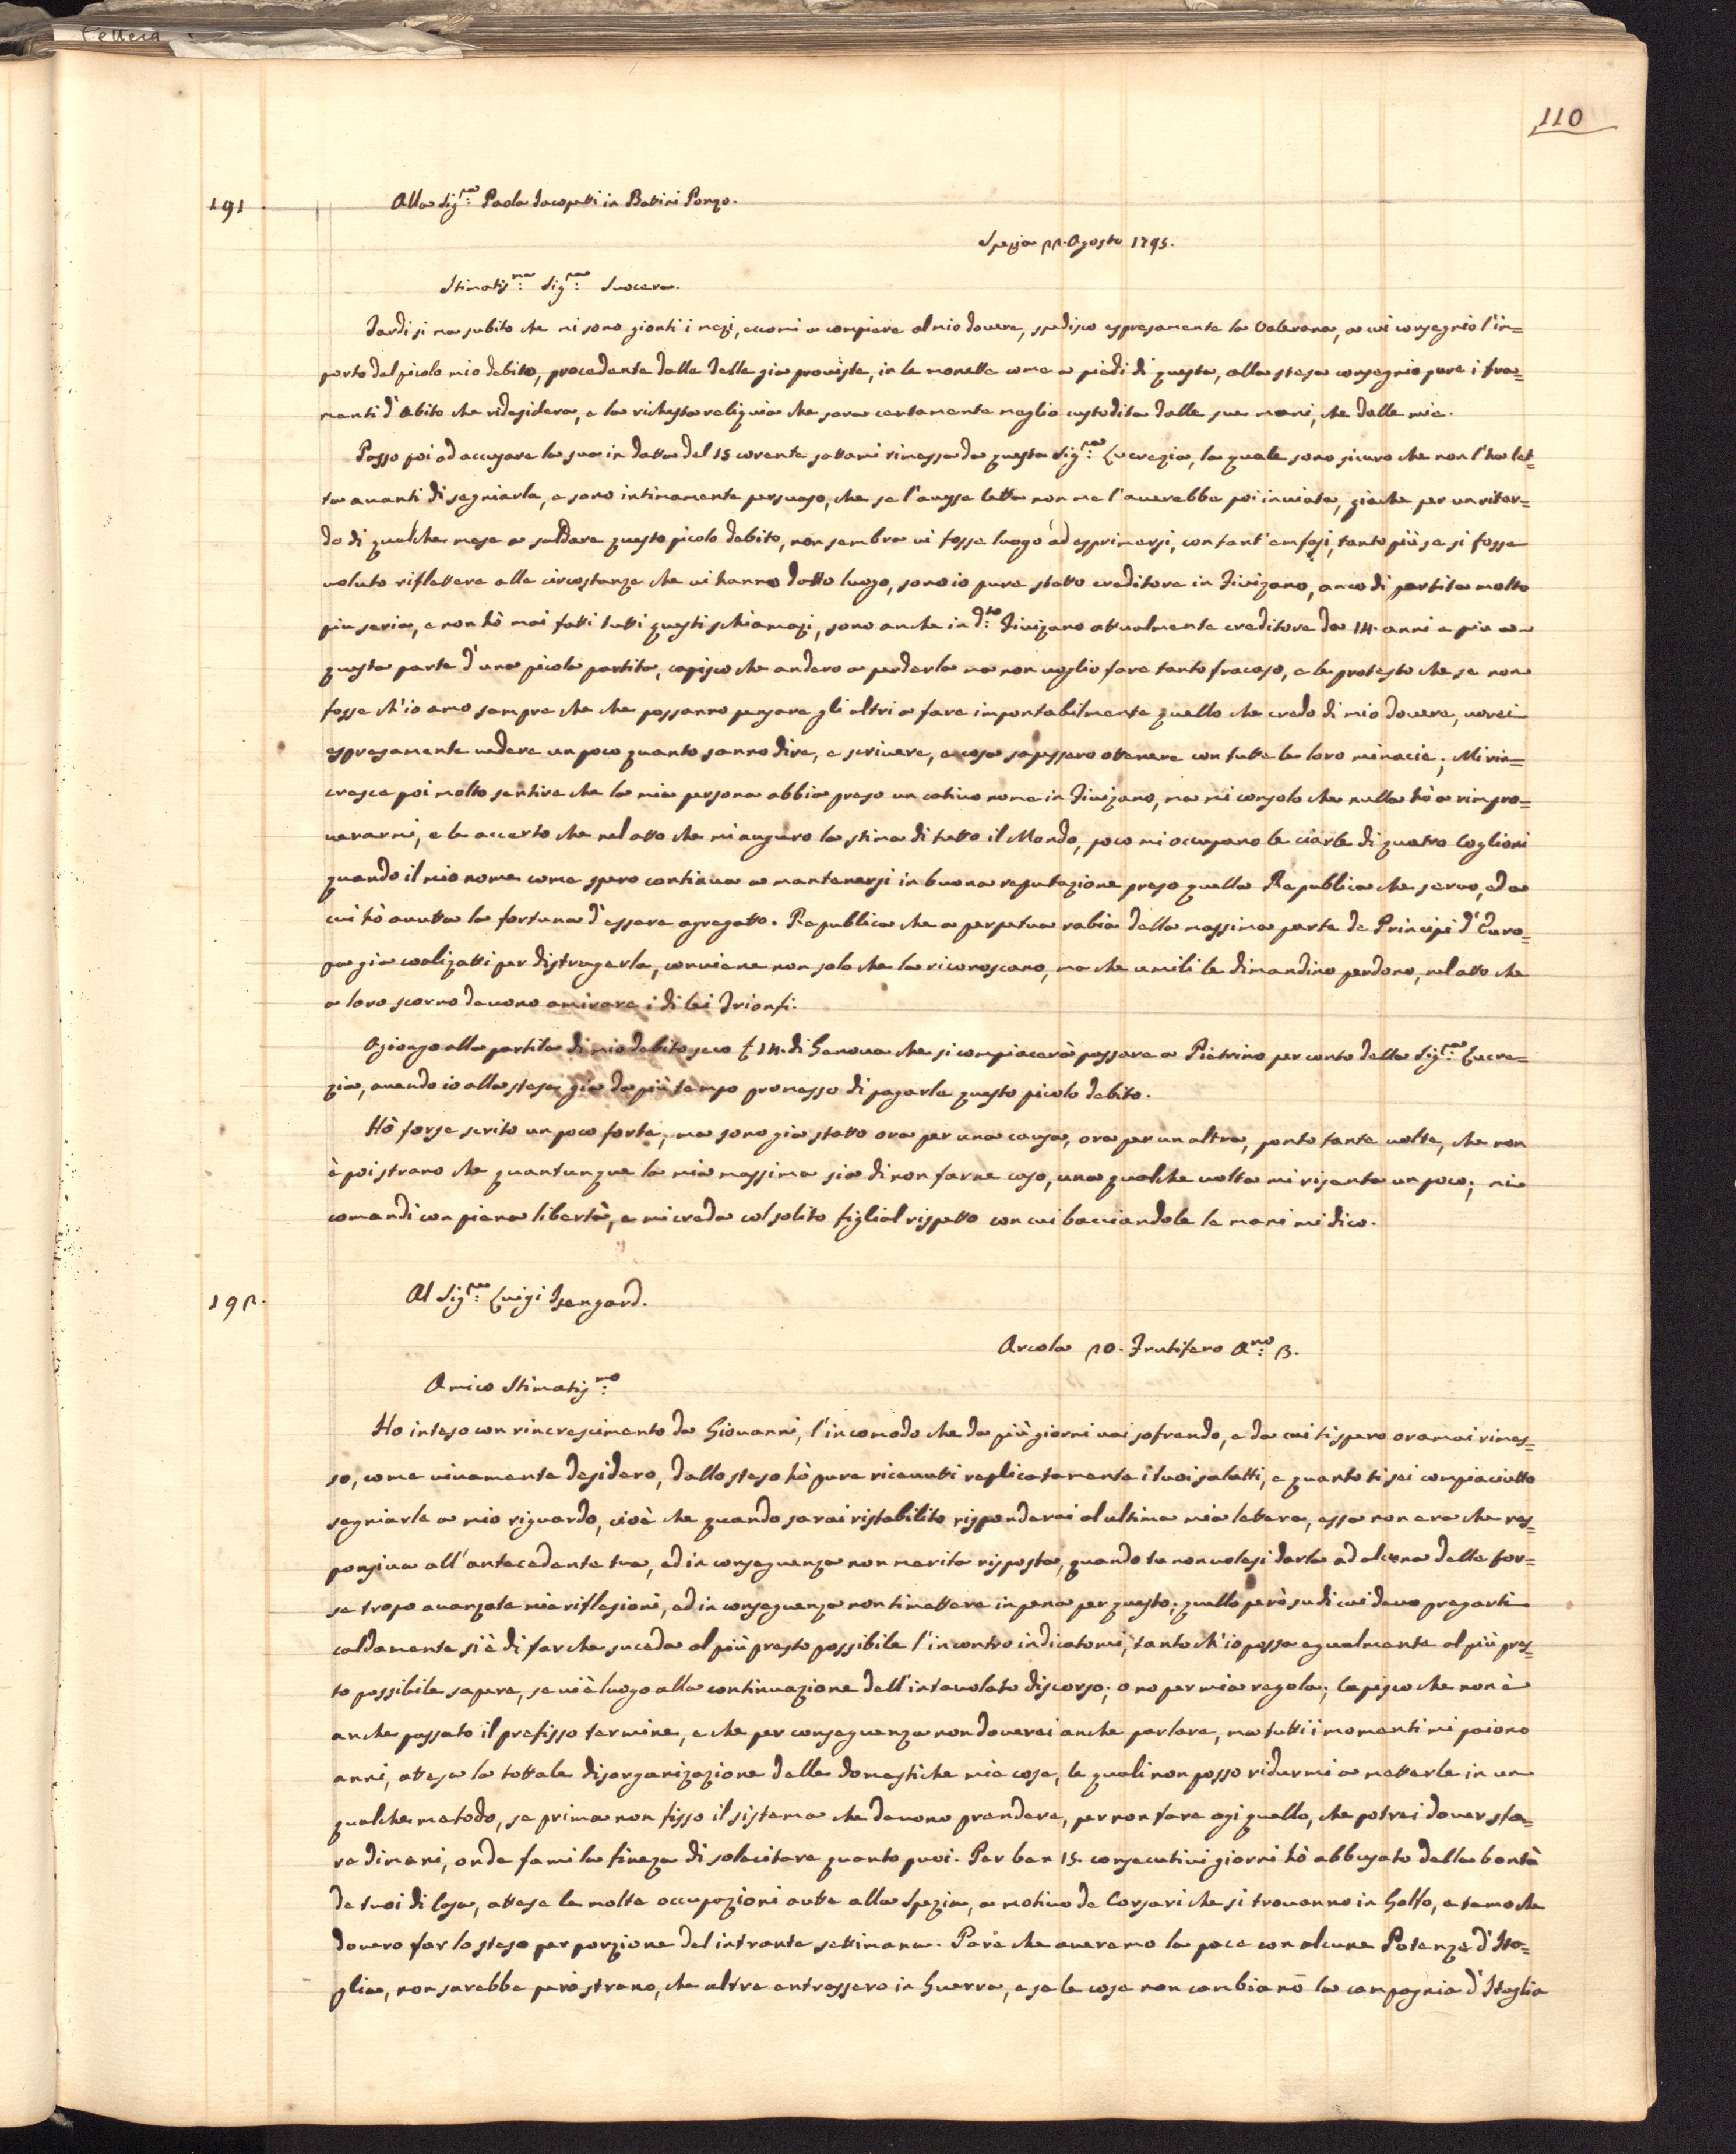 Lettera
110
191. Alla Sig:ra Paola Jacopetti in Battini Ponzo.
Spezia 22. Agosto 1795.
Stimatis:ma Sig:ra Suocera.
Tardi si ma subito che mi sono gionti i mezi, eccomi a compiere al mio dovere, spedisco espresamente la Valerana, a cui consegnio l'im=
porto del picolo mio debito, procedente dalle Telle gia proviste, in le monette come a piedi di questa, alla stesa consegnio pure i fra=
menti d'Abito che ridesidera, e la richesta reliquia che sara certamente meglio custodita dalle sue mani, che dalle mie.
Passo poi ad accusare la sua in datta del 15 corente sattami rimessa da questa Sig:ra Lucrezia, la quale sono sicuro che non l'ha let=
ta avanti di segniarla, e sono intimamente persuaso, che se l'avesse letta non me l'averebbe poi inviata, giache per un ritar=
do di qualche mese a saldare questo picolo debito, non sembra vi fosse luogo ad esprimersi, con tant'emfasi, tanto più se si fosse
voluto riflettere alle circostanze che vi hanno datto luogo, sono io pure statto creditore in Fivizano, anco di partita molto
piu seria, e non hò mai fatti tutti questi schiamazi, sono anche in d:to Fivizano attualmente creditore da 14. anni e piu a
questa parte d'una picola partita, capisco che andero a perderla ma non voglio fare tanto fracaso, e le protesto che se non
fosse ch'io amo sempre che che possanno pensare gli altri a fare inpontabilmente quello che credo di mio dovere, vorei
espresamente vedere un poco quanto sanno dire, e scrivere, e cosa sapessero ottenere con tutte le loro minacie; Mi rin=
cresce poi molto sentire che la mia persona abbia preso un cativo nome in Fivizano, ma mi consolo che nulla hò a rimpro=
verarmi, e le accerto che nel atto che mi auguro la stima di tutto il Mondo, poco mi occupano le ciarle di quatro Coglioni
quando il mio nome come spero continua a mantenersi in buona reputazione preso quella Republica che servo, ed a
cui hò avutta la fortuna d'essere agregatto. Republica che a perpetua rabia della massima parte de Principi d'Euro=
pa gia coalizatti per distrugerla, conviene non solo che la riconoscano, ma che umili le dimandino perdono, nel atto che
a loro scorno devono amirare i di lei Trionfi.
Agiongo alla partita di mio debito seco £ 14. di Genova che si compiacerà passare a Pietrino per conto della Sig:ra Lucre=
zia, avendo io alla stesa gia da più tempo promesso di pagarle questo picolo debito.
Hò forse scrito un poco forte, ma sono gia statto ora per una causa, ora per un altra, ponto tante volte, che non
è poi strano che quantunque la mia massima sia di non farne caso, una qualche volta mi risenta un poco; mi
comandi con piena libertà, e mi creda col solito figlial rispetto con cui bacciandole le mani mi dico.
192. Al Sig:re Luigi Isengard.
Arcola 20. Frutifero A:no 3.
Amico Stimatis:mo
Ho inteso con rincrescimento da Giovanni, l'incomodo che da più giorni vai sofrendo, e da cui ti spero oramai rimes=
so, come vivamente desidero, dallo steso hò pure ricevutti replicatamente i tuoi salutti, e quanto ti sei compiaciutto
segniarle a mio riguardo, cioè che quando sarai ristabilito risponderai al ultima mia lettera, essa non era che res=
ponsiva all'antecedente tua, ed in conseguenza non merita risposta, quando tu non volesi darla ad alcuna delle for=
se tropo avanzate mie riflesioni, ed in conseguenza non ti mettere in pena per questo; quello però su di cui devo pregarti
caldamente si è di far che suceda al più presto possibile l'incontro indicatomi, tanto ch'io possa egualmente al più pres=
to possibile sapere, se vi è luogo alla continuazione dell'intavolato discorso; o no per mia regola; Capisco che non è
anche passato il prefisso termine, e che per conseguenza non doverei anche parlare, ma tutti i momenti mi paiono
anni, attesa la tottale disorganizazione delle domestiche mie cose, le quali non posso ridurmi a metterle in un
qualche metodo, se prima non fisso il sistema che devono prendere, per non fare ogi quello, che potrei dover sfa=
re dimani, onde fami la fineza di solecitare quanto puoi. Per ben 15. consecutivi giorni hò abbusato della bontà
de tuoi di Casa, attese le molte occupazioni aute alla Spezia, a motivo de Corsari che si trovanno in Golfo, e temo che
dovero far lo steso per porzione del intrante settimana. Pare che averemo la pace con alcune Potenze d'Ita=
glia, non sarebbe però strano, che altre entrassero in Guerra, e se le cose non cambianò la campagnia d'Itaglia